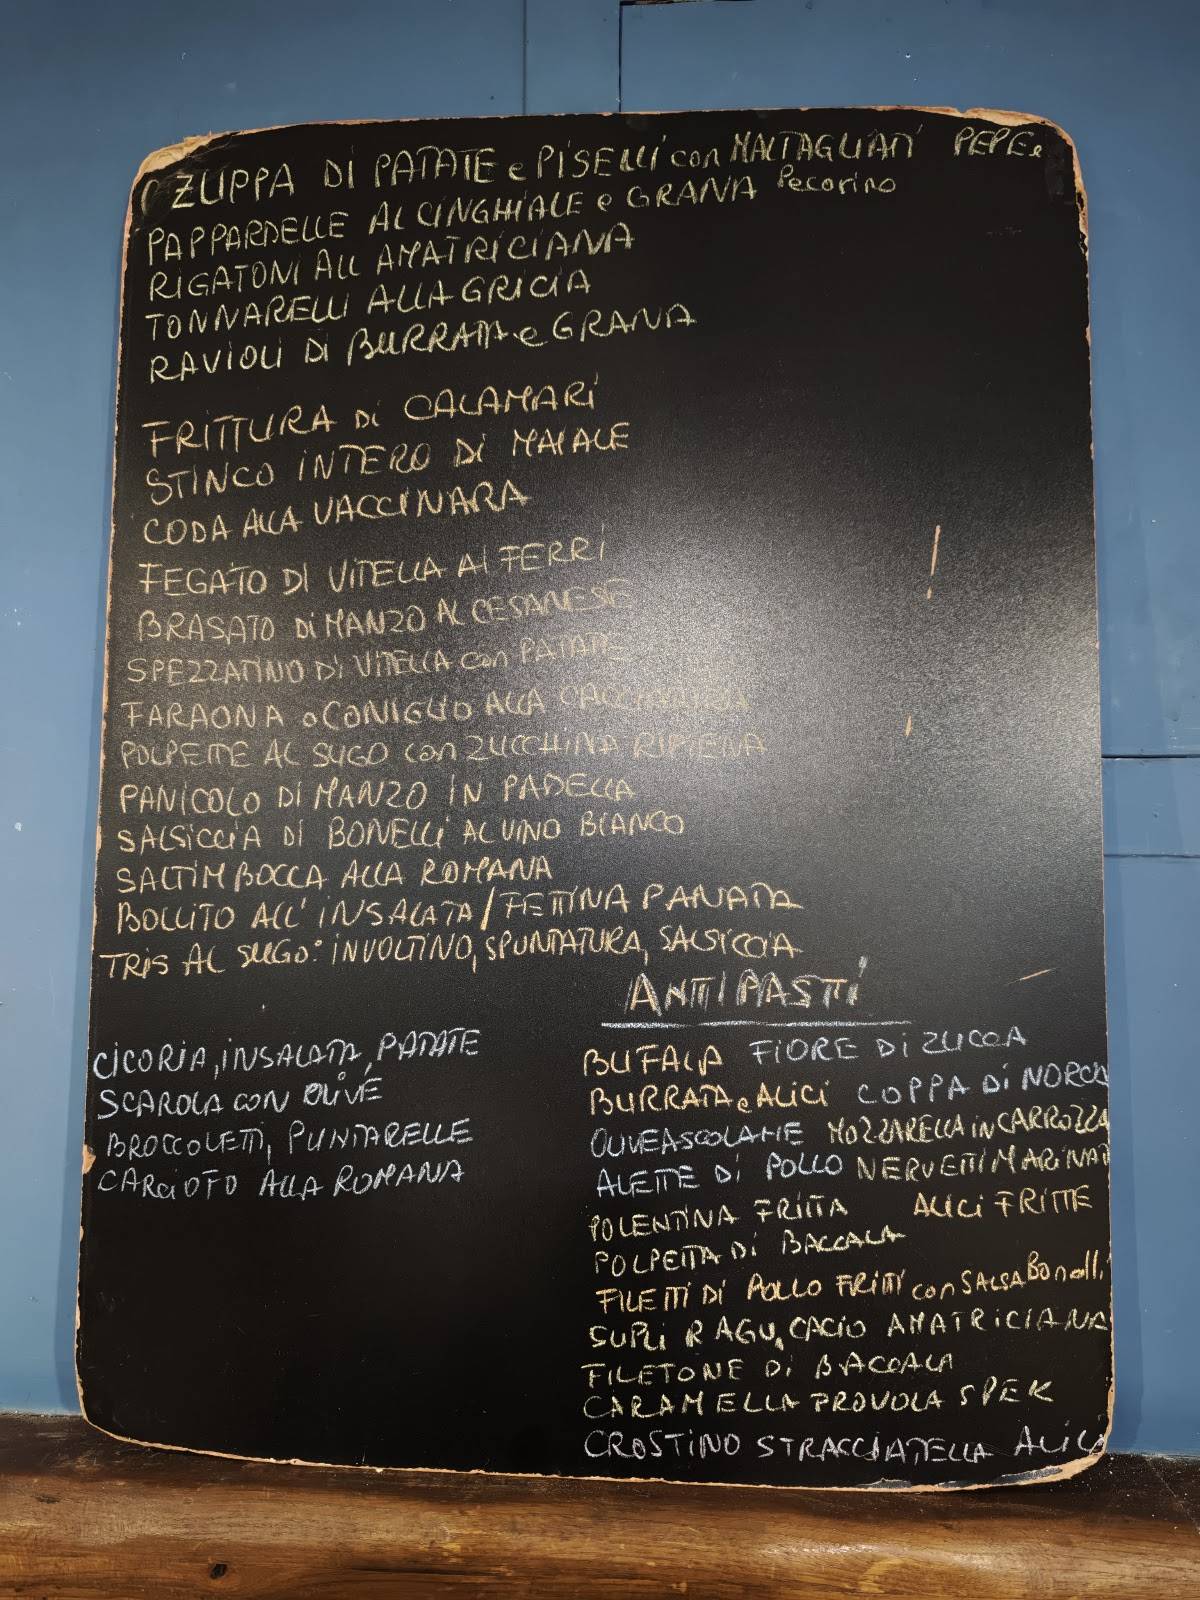 ZUPPA DI PATATE e PISELLI con MALTAGLIATI PEPE e
PAPPARDELLE AL CINGHIALE e GRANA Pecorino
RIGATONI ALL AMATRICIANA
TONNARELLI ALLA GRICIA
RAVIOLI DI BURRATA e GRANA
FRITTURA DI CALAMARI
STINCO INTERO DI MAIALE
CODA ALLA VACCINARA
FEGATO DI VITELLA AI FERRI
BRASATO DI MANZO AL CESANESE
SPEZZATINO DI VITELLA con PATATE
FARAONA o CONIGLIO ALLA CACCIATORA
POLPETTE AL SUGO con ZUCCHINA RIPIENA
PANICOLO DI MANZO IN PADELLA
SALSICCIA DI BONELLI AL VINO BIANCO
SALTIMBOCCA ALLA ROMANA
BOLLITO ALL' INSALATA / FETTINA PANATA
TRIS AL SUGO: INVOLTINO, SPUNTATURA, SALSICCIA
CICORIA, INSALATA, PATATE
SCAROLA CON OLIVE
BROCCOLETTI, PUNTARELLE
CARCIOFO ALLA ROMANA
ANTIPASTI
BUFALA FIORE DI ZUCCA
BURRATA e ALICI COPPA DI NORCIA
OLIVE ASCOLANE MOZZARELLA IN CARROZZA
ALETTE DI POLLO NERVETTI MARINATI
POLENTINA FRITTA ALICI FRITTE
POLPETTA DI BACCALA
FILETTI DI POLLO FRITTI con SALSA Bonelli
SUPLI RAGU, CACIO AMATRICIANA
FILETTONE DI BACCALA
CARAMELLA PROVOLA SPEK
CROSTINO STRACCIATELLA ALICI